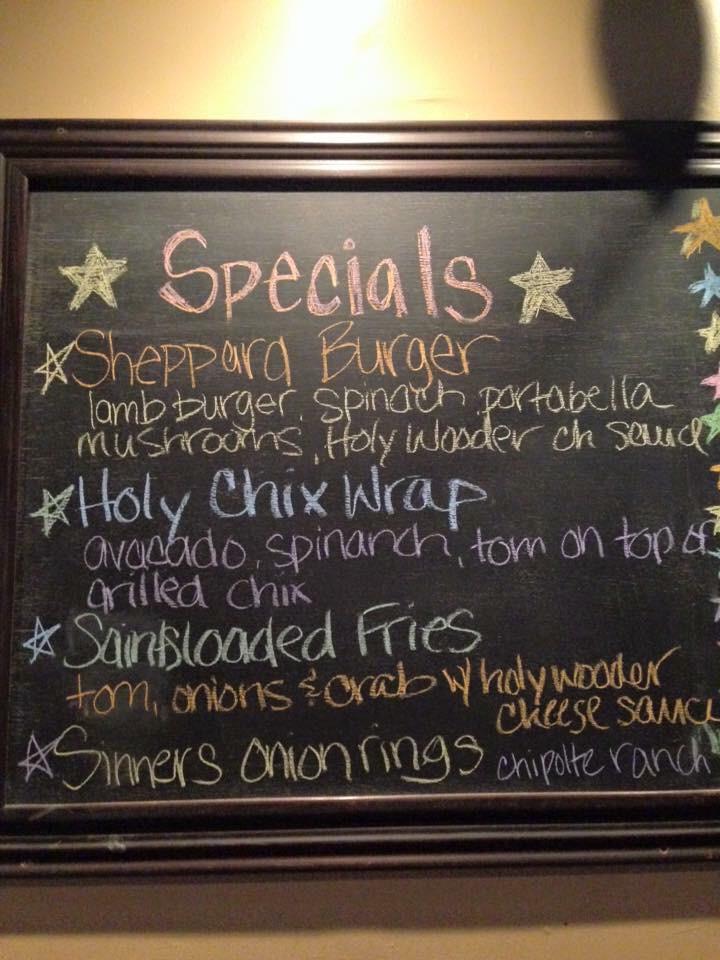 Specials
Sheppard Burger
lamb burger, spinach, portabella
mushrooms, Holy Wooder ch sauce
Holy Chix Wrap
avacado, spinanch, tom on top of
grilled chix
Saintsloaded Fries
tom, onions & crab w/ holy wooder
cheese sauce
Sinners onion rings chipolte ranch